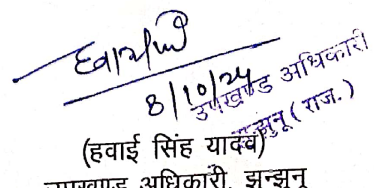 8/10/24
उपखण्ड अधिकारी
झुन्झुनू (राज.)
(हवाई सिंह यादव)
उपखण्ड अधिकारी, झुन्झुनू